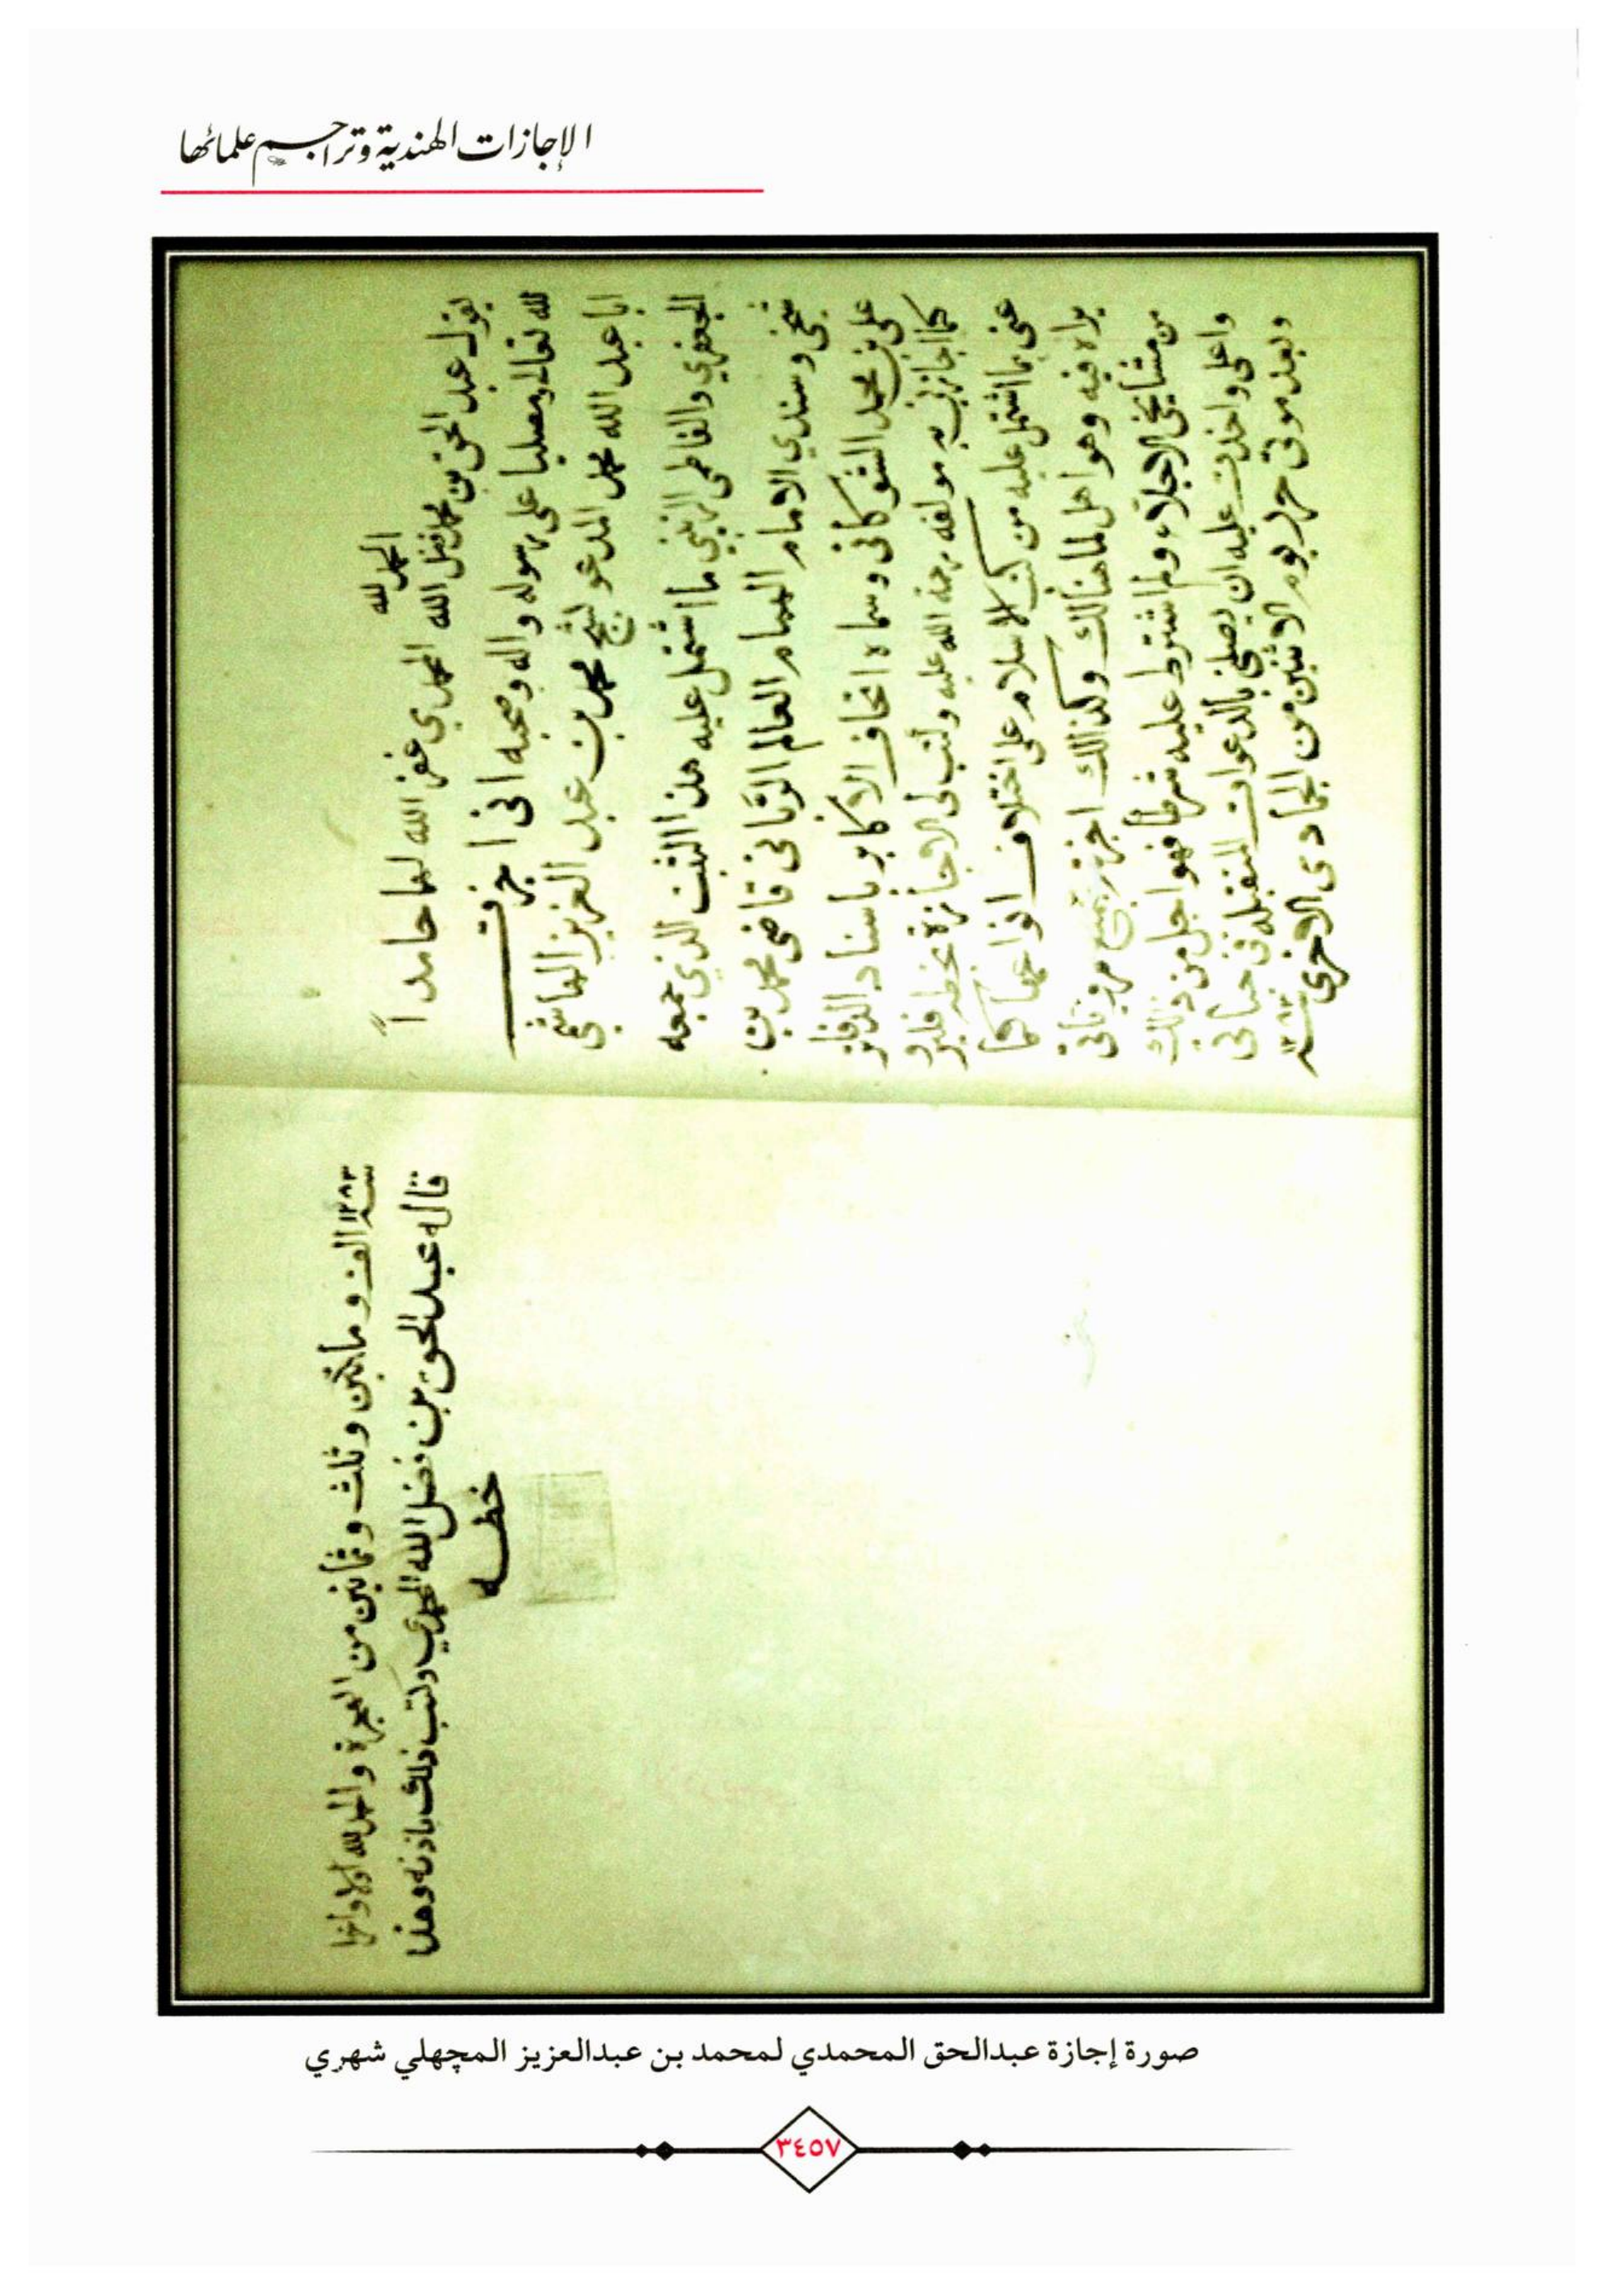 الإجازات الهندية وتراجم علمائها
الحمد لله
يقول عبد الحق بن محمد فضل الله المحمدي غفر الله لهما حامداً
لله تعالى ومصليا على رسوله واله وصحبه اني اجزت
ابا عبد الله محمد المدعو بشيخ محمد بن عبد العزيز الهاشمي
الجعفري والفاطمي الزينبي ما اشتمل عليه هذا الثبت الذي جمعه
شيخي وسندي الامام الهمام العالم الرباني قاضي محمد بن
علي بن محمد الشوكاني وسماه اتحاف الاكابر باسناد الدفاتر
كما اجازني به مولفه رحمة الله عليه وكتب لي الاجازة بخطه فليرو
عني ما اشتمل عليه من كتب الاسلام على اختلاف انواعها كما
يراه فيه وهو اهل لما هنالك وكذالك اجزته بجميع مروياتي
من مشايخي الاجلاء ولم اشترط عليه شرطا فهو اجل من ذلك
واعلى واخذت عليه ان يصلني بالدعوات المتقبلة في حياتي
وبعد موتي حرر يوم الاثنين من الجمادى الاخرى
سنة ١٢٨٣ الف ومأتين وثلث وثمانين من الهجرة والحمد لله اولا واخرا
قاله عبد الحق بن فضل الله المحمدي وكتب ذلك باذنه وهذا
خطه
صورة إجازة عبدالحق المحمدي لمحمد بن عبدالعزيز المچهلي شهري
٣٤٥٧